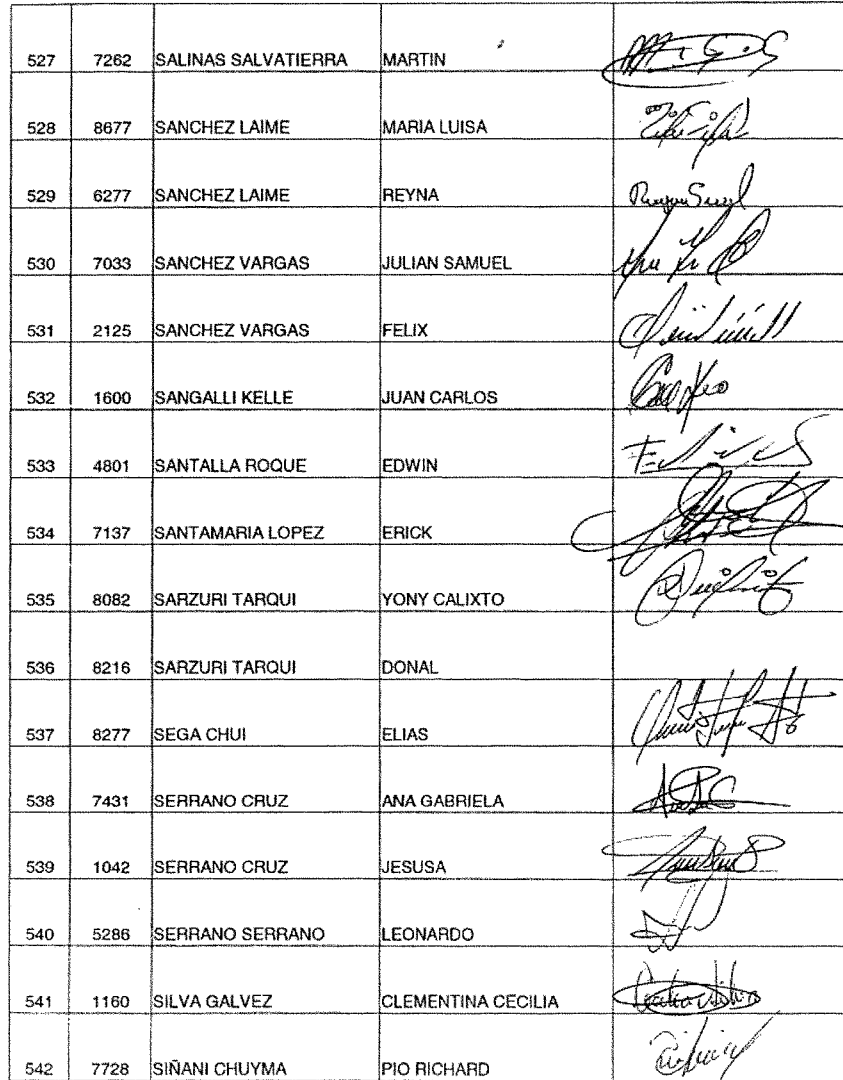 527 7262 SALINAS SALVATIERRA MARTIN
528 8677 SANCHEZ LAIME MARIA LUISA
529 6277 SANCHEZ LAIME REYNA
530 7033 SANCHEZ VARGAS JULIAN SAMUEL
531 2125 SANCHEZ VARGAS FELIX
532 1600 SANGALLI KELLE JUAN CARLOS
533 4801 SANTALLA ROQUE EDWIN
534 7137 SANTAMARIA LOPEZ ERICK
535 8082 SARZURI TARQUI YONY CALIXTO
536 8216 SARZURI TARQUI DONAL
537 8277 SEGA CHUI ELIAS
538 7431 SERRANO CRUZ ANA GABRIELA
539 1042 SERRANO CRUZ JESUSA
540 5286 SERRANO SERRANO LEONARDO
541 1160 SILVA GALVEZ CLEMENTINA CECILIA
542 7728 SIÑANI CHUYMA PIO RICHARD